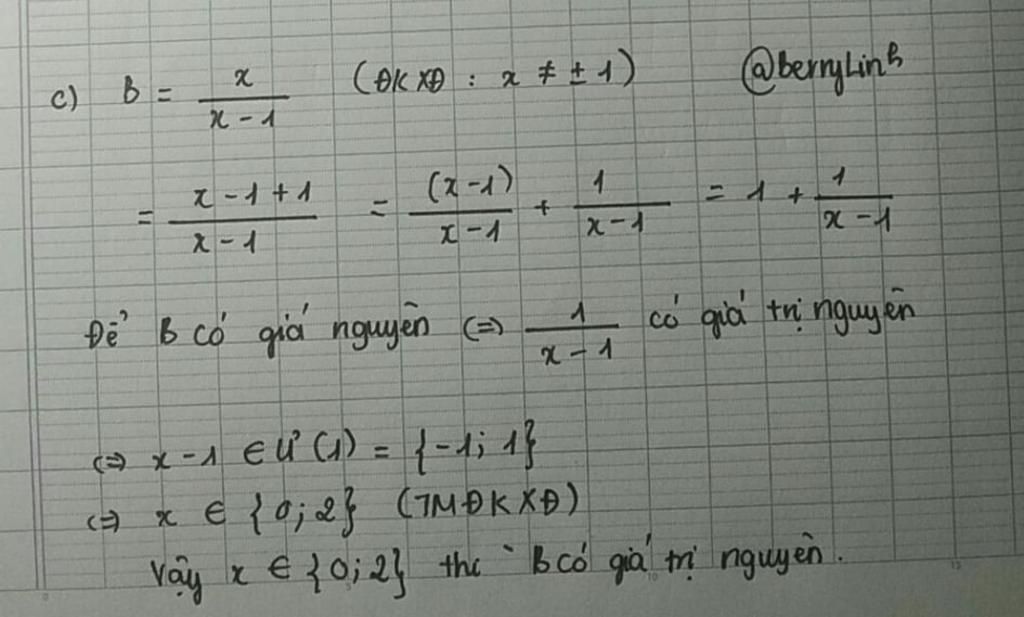 c) B = x / (x - 1) (ĐKXĐ : x ≠ ± 1) @berryLinh
= (x - 1 + 1) / (x - 1) = (x - 1) / (x - 1) + 1 / (x - 1) = 1 + 1 / (x - 1)
Để B có giá nguyên (=) 1 / (x - 1) có giá trị nguyên
(=) x - 1 ∈ Ư(1) = {-1; 1}
(=) x ∈ {0; 2} (TMĐKXĐ)
Vậy x ∈ {0; 2} thì B có giá trị nguyên.